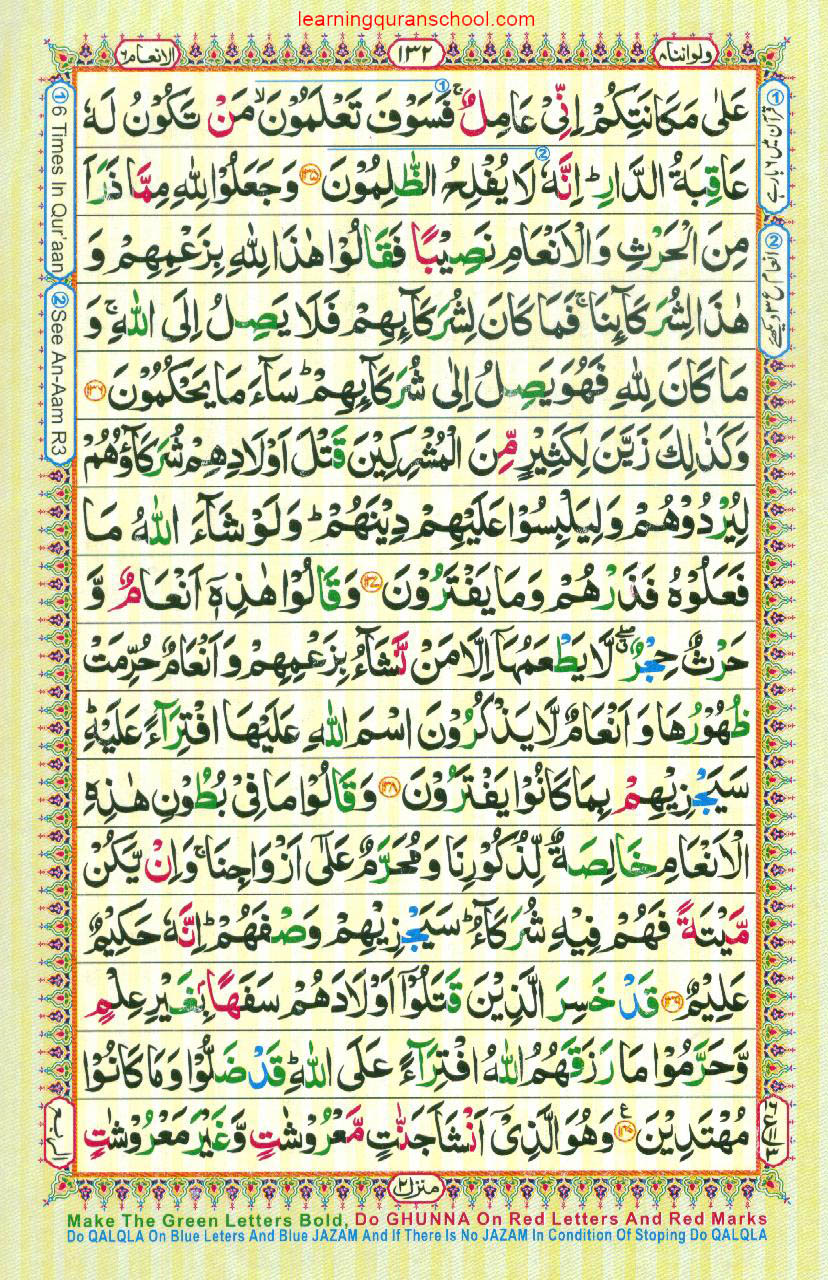 learningquranschool.com
ولواننا ٨
١٣٢
الانعام ٦
عَلٰى مَكَانَتِكُمْ اِنِّىْ عَامِلٌ ۚ فَسَوْفَ تَعْلَمُوْنَ ۙ مَنْ تَكُوْنُ لَهٗ
عَاقِبَةُ الدَّارِ ؕ اِنَّهٗ لَا يُفْلِحُ الظّٰلِمُوْنَ ﴿۱۳۵﴾ وَجَعَلُوْا لِلّٰهِ مِمَّا ذَرَاَ
مِنَ الْحَرْثِ وَالْاَنْعَامِ نَصِيْبًا فَقَالُوْا هٰذَا لِلّٰهِ بِزَعْمِهِمْ وَ
هٰذَا لِشُرَكَآئِنَا ۚ فَمَا كَانَ لِشُرَكَآئِهِمْ فَلَا يَصِلُ اِلَى اللّٰهِ ۚ وَ
مَا كَانَ لِلّٰهِ فَهُوَ يَصِلُ اِلٰى شُرَكَآئِهِمْ ؕ سَآءَ مَا يَحْكُمُوْنَ ﴿۱۳۶﴾
وَكَذٰلِكَ زَيَّنَ لِكَثِيْرٍ مِّنَ الْمُشْرِكِيْنَ قَتْلَ اَوْلَادِهِمْ شُرَكَآؤُهُمْ
لِيُرْدُوْهُمْ وَلِيَلْبِسُوْا عَلَيْهِمْ دِيْنَهُمْ ؕ وَلَوْ شَآءَ اللّٰهُ مَا
فَعَلُوْهُ فَذَرْهُمْ وَمَا يَفْتَرُوْنَ ﴿۱۳۷﴾ وَقَالُوْا هٰذِهٖۤ اَنْعَامٌ وَّ
حَرْثٌ حِجْرٌ ۖ لَّا يَطْعَمُهَاۤ اِلَّا مَنْ نَّشَآءُ بِزَعْمِهِمْ وَاَنْعَامٌ حُرِّمَتْ
ظُهُوْرُهَا وَاَنْعَامٌ لَّا يَذْكُرُوْنَ اسْمَ اللّٰهِ عَلَيْهَا افْتِرَآءً عَلَيْهِ ؕ
سَيَجْزِيْهِمْ بِمَا كَانُوْا يَفْتَرُوْنَ ﴿۱۳۸﴾ وَقَالُوْا مَا فِىْ بُطُوْنِ هٰذِهِ
الْاَنْعَامِ خَالِصَةٌ لِّذُكُوْرِنَا وَمُحَرَّمٌ عَلٰٓى اَزْوَاجِنَا ۚ وَاِنْ يَّكُنْ
مَّيْتَةً فَهُمْ فِيْهِ شُرَكَآءُ ؕ سَيَجْزِيْهِمْ وَصْفَهُمْ ؕ اِنَّهٗ حَكِيْمٌ
عَلِيْمٌ ﴿۱۳۹﴾ قَدْ خَسِرَ الَّذِيْنَ قَتَلُوْۤا اَوْلَادَهُمْ سَفَهًۢا بِغَيْرِ عِلْمٍ
وَّحَرَّمُوْا مَا رَزَقَهُمُ اللّٰهُ افْتِرَآءً عَلَى اللّٰهِ ؕ قَدْ ضَلُّوْا وَمَا كَانُوْا
مُهْتَدِيْنَ ﴿۱۴۰﴾ ع وَهُوَ الَّذِىْۤ اَنْشَاَ جَنّٰتٍ مَّعْرُوْشٰتٍ وَّغَيْرَ مَعْرُوْشٰتٍ
① قرآن میں ٦ بار ہے
② انعام ع ٣ دیکھئے
① 6 Times In Qur'aan
② See An-Aam R3
الربع
منزل ٢
Make The Green Letters Bold, Do GHUNNA On Red Letters And Red Marks
Do QALQLA On Blue Leters And Blue JAZAM And If There Is No JAZAM In Condition Of Stoping Do QALQLA